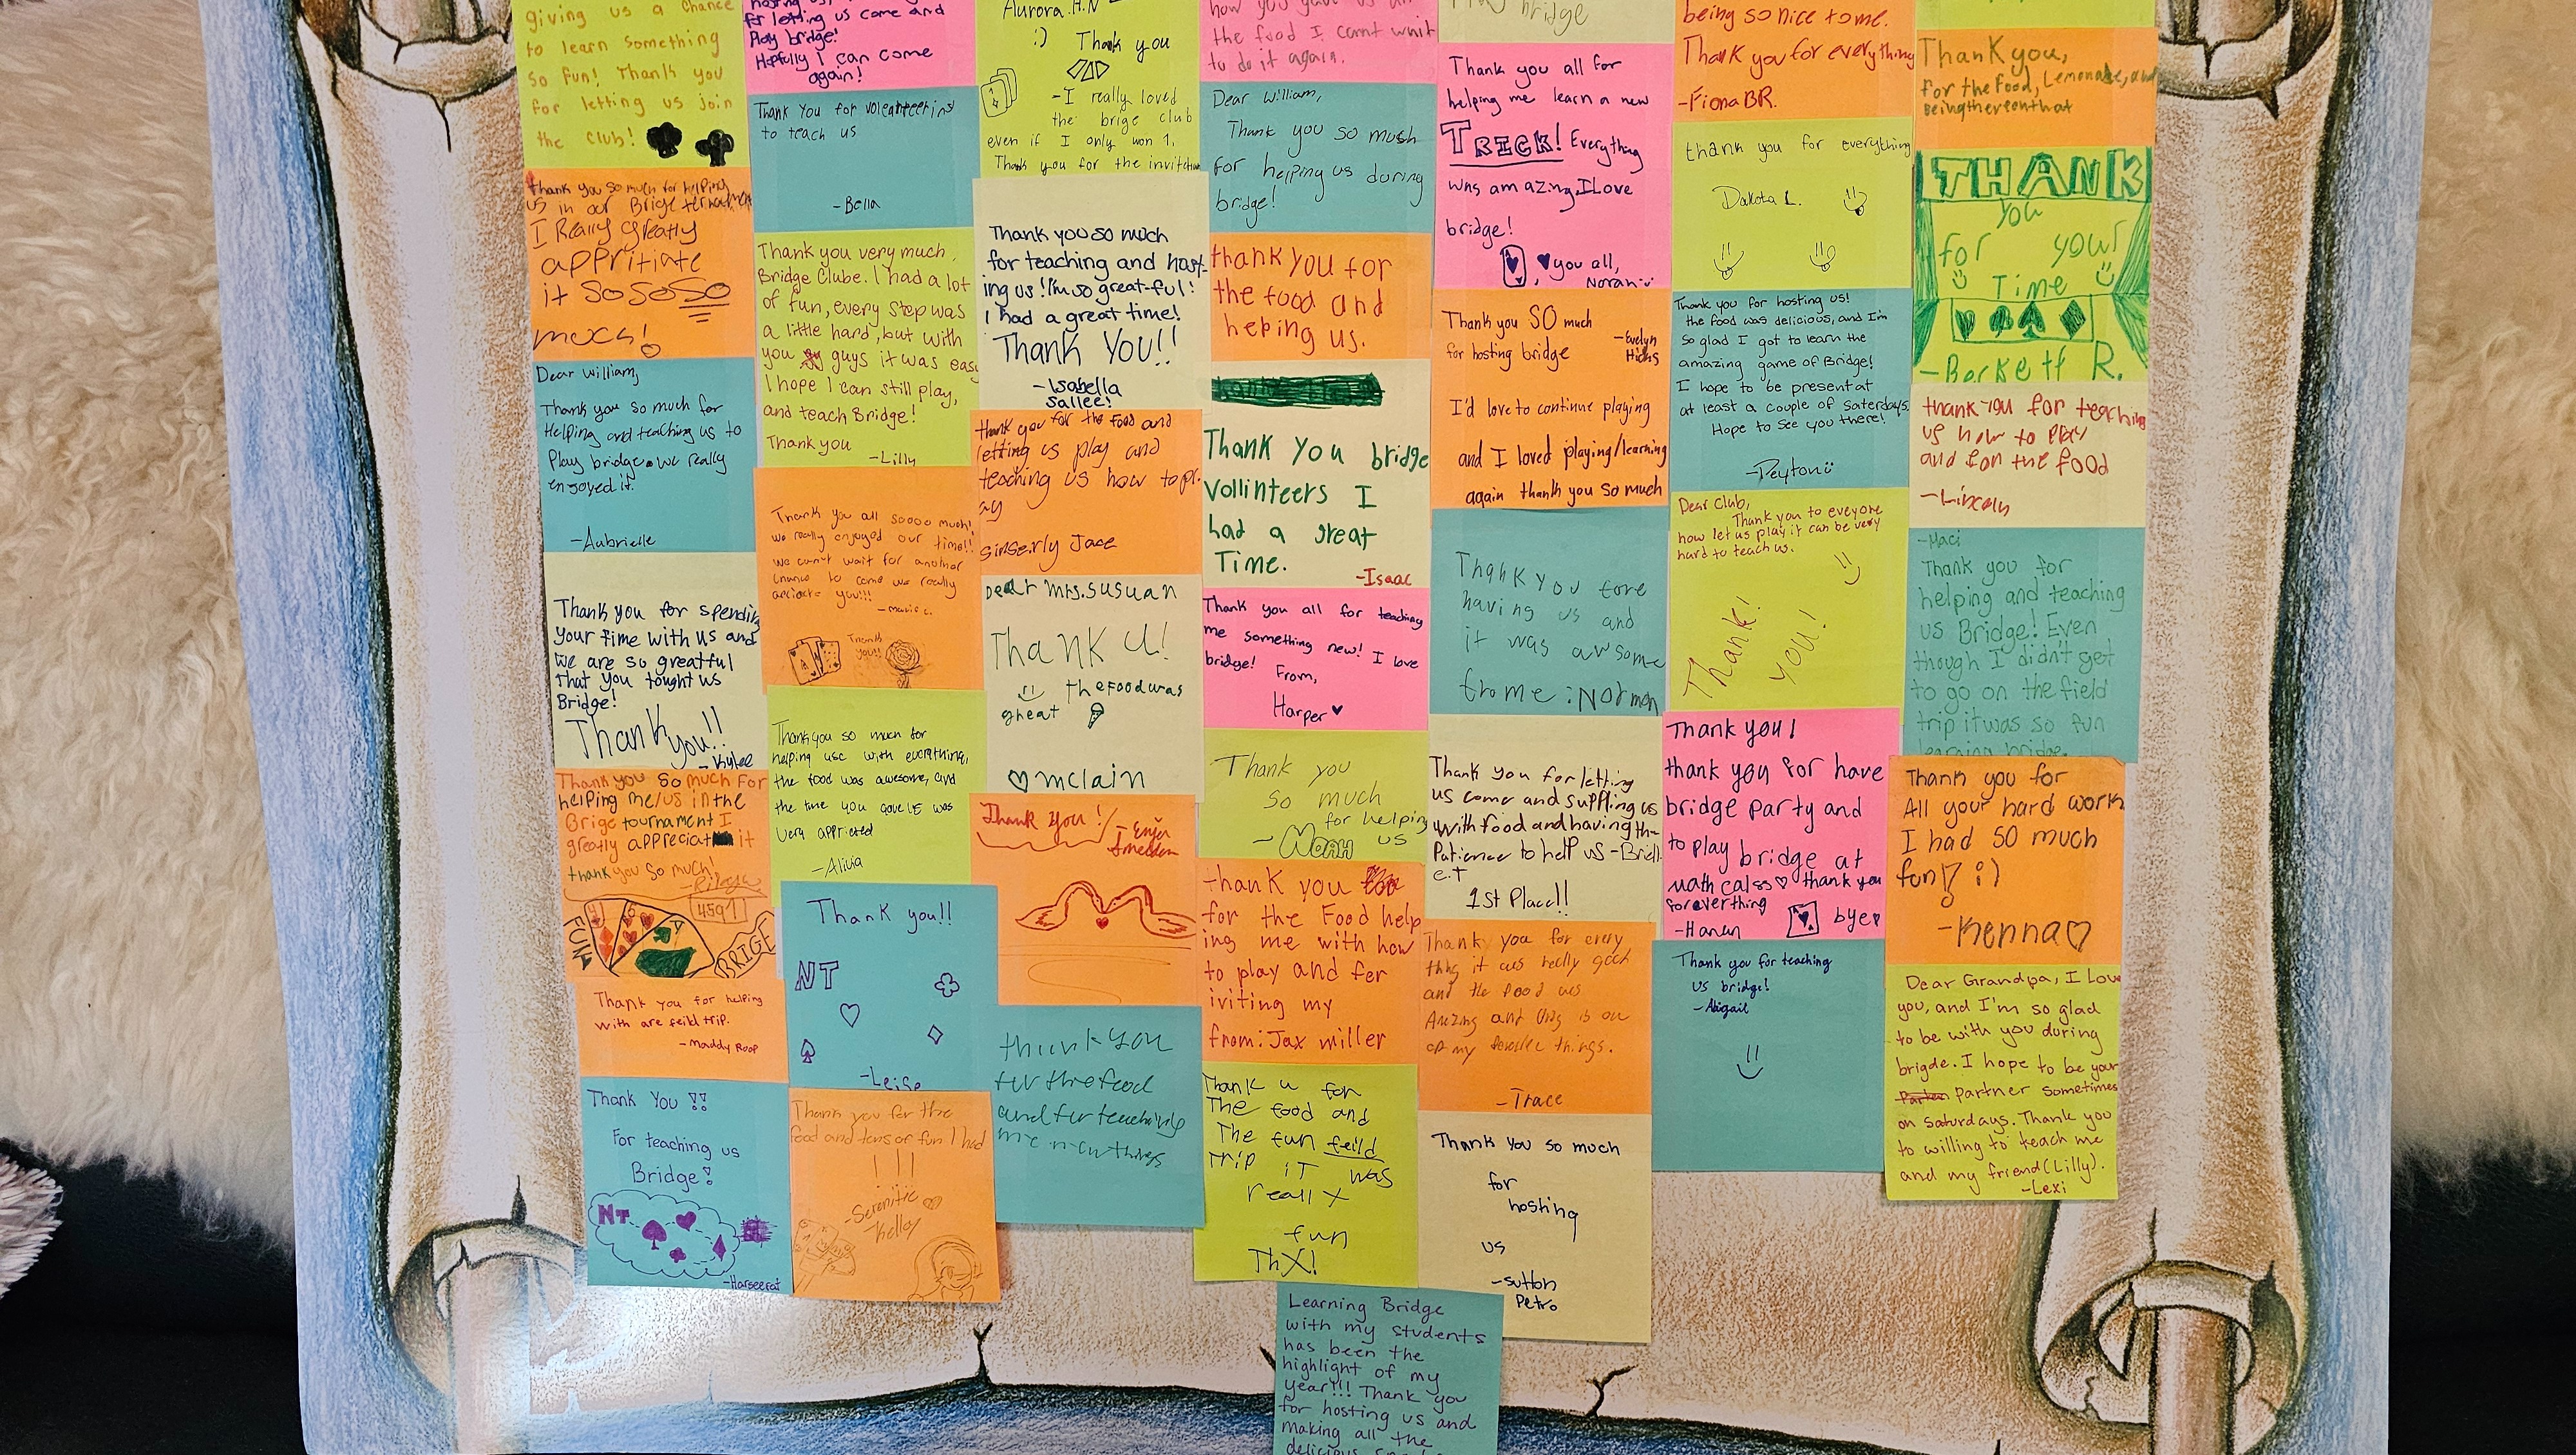 giving us a chance
to learn something
so fun! Thank you
for letting us join
the club!
thank you so much for helping
us in our Brige
I Really greatly
appritiate
it SO SO SO
much!
Dear William,
Thank you so much for
Helping and teaching us to
Play bridge. we really
enjoyed it.
-Aubrielle
Thank you for spending
your time with us and
we are so greatful
that you tought us
Bridge!
Thank you!!
-Kylee
Thank you so much For
helping me/us in the
Brige tournament I
greatly appreciat it
thank you so much!
4591
FUN
BRIGE
Thank you for helping
with are feild trip.
-Maddy Roop
Thank You !!
For teaching us
Bridge!
NT
-Harseerat
for letting us come and
Play bridge!
Hopfully I can come
again!
Thank You for voleanteering
to teach us
-Bella
Thank you very much,
Bridge Clube. I had a lot
of fun, every step was
a little hard, but with
you guys it was easy
I hope I can still play,
and teach Bridge!
Thank you
-Lilly
Thank you all soooo much!
we really enjoyed our time!!
we can't wait for another
chance to come we really
you!!!
Thank
you!!
Thank you so much for
helping usc with everything,
the food was awesome, and
the time you gave us was
very appricted
-Alivia
Thank you!!
NT
-Leise
Thank you for the
food and tons of fun I had
!!!
-Serenitie
Kelley
Aurora.H.N
:) Thank you
-I really loved
the brige club
even if I only won 1.
Thank you for the invitation
Thank you so much
for teaching and host-
ing us! I'm so great-ful!
I had a great time!
Thank You!!
-Isabella
Sallee!
thank you for the food and
letting us play and
teaching us how to pl-
ay
sinseirly Jace
Dear Mrs.Susuan
Thank U!
the food was
great
♡mclain
Thank you!
thank you
fur the food
and fur teaching
me new things
how you gave us all
the food I cannt whit
to do it again.
Dear William,
Thank you so mush
for helping us during
bridge!
thank you for
the food and
heping us.
Thank You bridge
vollinteers I
had a great
Time.
-Isaac
Thank you all for teaching
me something new! I love
bridge! From,
Harper ♥
Thank you
so much
for helping
-Noah us
thank you
for the Food help
ing me with how
to play and fer
iviting my
from: Jax miller
Thank u for
The food and
The fun feild
Trip iT was
really
fun
ThX!
Learning Bridge
with my students
has been the
highlight of my
year!!! Thank you
for hosting us and
making all the
delicious
Play bridge
Thank you all for
helping me learn a new
TRICK! Everything
was amazing, I Love
bridge!
♥ you all,
Noran
Thank you SO much
for hosting bridge
-Evelyn
Hicks
I'd love to continue playing
and I loved playing/learning
again thank you so much
Thank you fore
having us and
it was awsome
frome: Norman
Thank you for letting
us come and suppling us
with food and having th-
Patience to help us -Briell
e.T
1st Place!!
Thank you for every
thing it was really good
and the food was
Amzing and this is on
of my favorite things.
-Trace
Thank you so much
for
hosting
us
-Sutton
Petro
being so nice to me.
Thank you for everything
-Fiona BR.
thank you for everything
Dakota L.
Thank you for hosting us!
the food was delicious, and I'm
so glad I got to learn the
amazing game of Bridge!
I hope to be present at
at least a couple of Saterdays.
Hope to see you there!
-Peyton
Dear Club,
Thank you to eveyone
how let us play it can be very
hard to teach us.
Thank!
you!
Thank you!
thank you for have
bridge party and
to play bridge at
math calss♡ thank you
for everthing
bye♥
-Hanan
Thank you for teaching
us bridge!
-Abigail
Thank you,
for the food, Lemonade, and
Being there on that
THANK
you
for your
Time
-Beckett R.
thank you for teaching
us how to play
and for the food
-Lincoln
-Maci
Thank you for
helping and teaching
us Bridge! Even
though I didn't get
to go on the field
trip it was so fun
learning bridge.
Thank you for
All your hard work
I had so much
fun!! :)
-Kenna♡
Dear Grandpa, I Love
you, and I'm so glad
to be with you during
brigde. I hope to be your
partner sometimes
on Saturdays. Thank you
to willing to teach me
and my friend (Lilly).
-Lexi